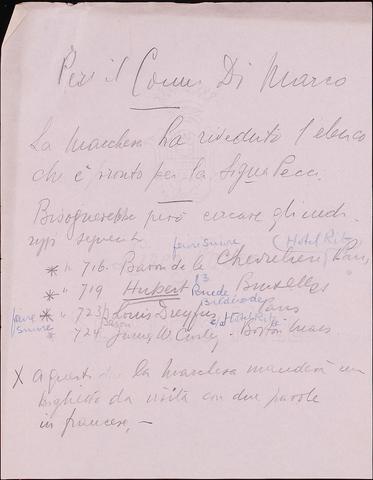 Per il Comm Di Marco
La Marchesa ha riveduto l'elenco
che è pronto per la Sig.na Pecci.
Bisognerebbe però cercare gli indi-
rizzi seguenti
faire suivre (Hotel Ritz
* " 716. Baron de la Chevrelière Paris
13
* " 719 Hubert Rue de Bruxelles
faire * " 723 Louis Dreyfus Paris
suivre Baron c/o Hotel Ritz
* " 724 James W. Curley - Boston Mass
X a questi la Marchesa manderà un
biglietto da visita con due parole
in francese, -